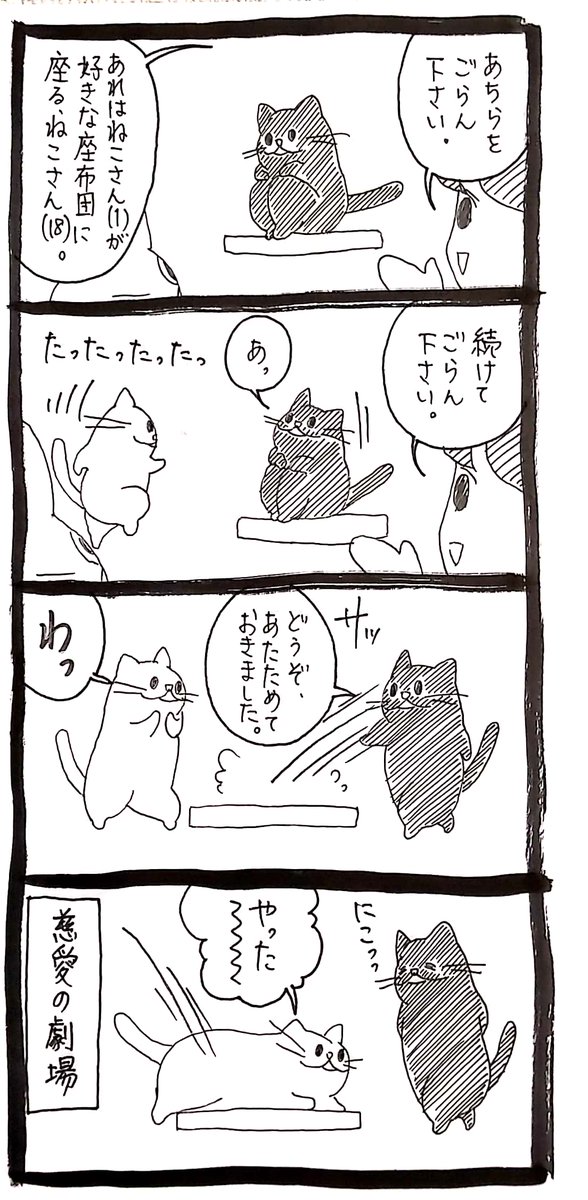 あちらを
ごらん
下さい。
あれはねこさん(1)が
好きな座布団に
座る、ねこさん(18)。
続けて
ごらん
下さい。
あっ
たったったったっ
サッ
どうぞ、
あたためて
おきました。
わっ
にこっっ
やった
慈愛の劇場